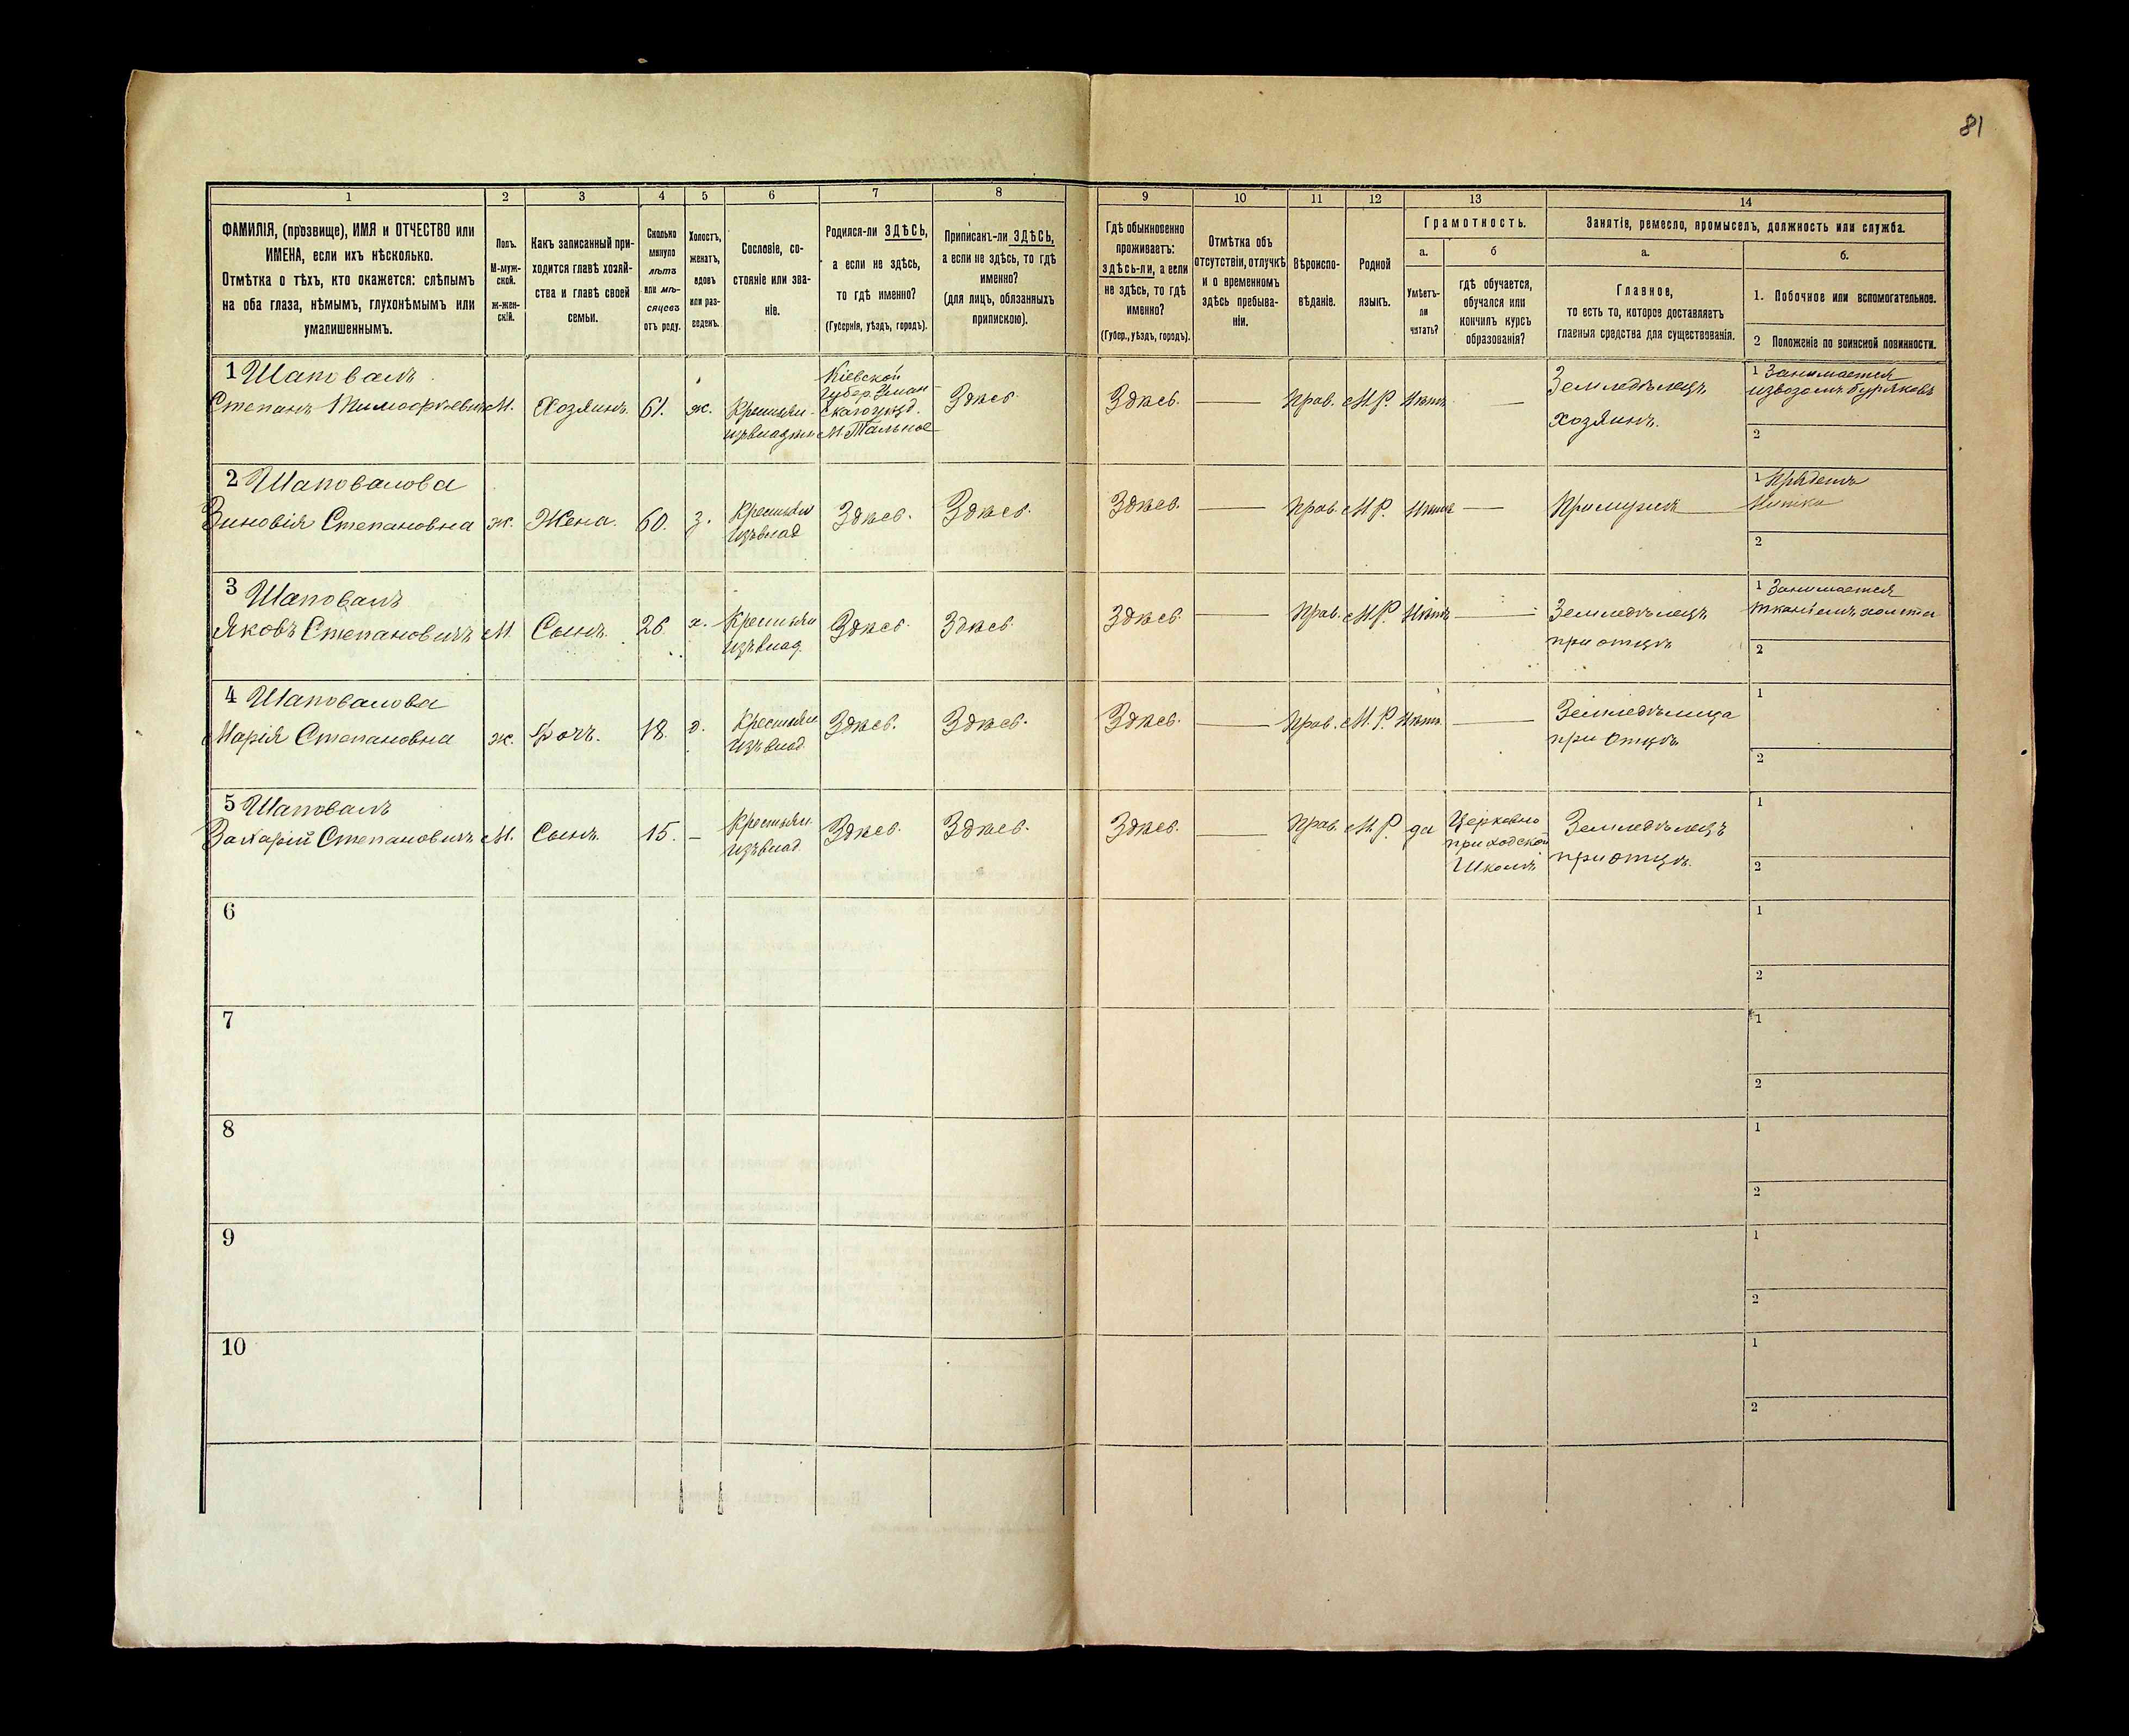 81
1
2
3
4
5
6
7
8
9
10
11
12
13
14
ФАМИЛІЯ, (прозвище), ИМЯ и ОТЧЕСТВО или
ИМЕНА, если ихъ нѣсколько.
Отмѣтка о тѣхъ, кто окажется: слѣпымъ
на оба глаза, нѣмымъ, глухонѣмымъ или
умалишеннымъ.
Полъ.
М-муж-
ской.
ж-жен-
скій.
Какъ записанный при-
ходится главѣ хозяй-
ства и главѣ своей
семьи.
Сколько
минуло
лѣтъ
или мѣ-
сяцевъ
отъ роду.
Холостъ,
женатъ,
вдовъ
или раз-
веденъ.
Сословіе, со-
стояніе или зва-
ніе.
Родился-ли ЗДѢСЬ,
а если не здѣсь,
то гдѣ именно?
(Губернія, уѣздъ, городъ).
Приписанъ-ли ЗДѢСЬ,
а если не здѣсь, то гдѣ
именно?
(для лицъ, обязанныхъ
припискою).
Гдѣ обыкновенно
проживаетъ:
здѣсь-ли, а если
не здѣсь, то гдѣ
именно?
(Губер., уѣздъ, городъ).
Отмѣтка объ
отсутствіи, отлучкѣ
и о временномъ
здѣсь пребыва-
ніи.
Вѣроиспо-
вѣданіе.
Родной
языкъ.
Грамотность.
а.
Умѣетъ-
ли
читать?
б
гдѣ обучается,
обучался или
кончилъ курсъ
образованія?
Занятіе, ремесло, промыселъ, должность или служба.
а.
Главное,
то есть то, которое доставляетъ
главныя средства для существованія.
б.
1. Побочное или вспомогательное.
2 Положеніе по воинской повинности.
1 Шаповалъ
Степанъ Тимофѣевичъ
М.
Хозяинъ.
61.
ж.
Крестьян.
Кіевской
Губер. Уман-
скаго уѣзд.
М. Тальное
Здѣсь
Здѣсь.
Прав.
М. Р.
Нѣтъ
Земледѣлецъ
Хозяинъ.
1 Занимается
извозомъ буряковъ
2
2 Шаповалова
Зиновія Степановна
ж.
Жена.
60.
з.
Крестьян
изъ влад
Здѣсь.
Здѣсь.
Здѣсь.
Прав.
М. Р.
Нѣтъ
1 Прядетъ
Нитки
2
3 Шаповалъ
Яковъ Степановичъ
М.
Сынъ.
26
х.
Крестьян
изъ влад.
Здѣсь.
Здѣсь.
Здѣсь.
Прав.
М. Р.
Нѣтъ
Земледѣлецъ
при отцѣ
1 Занимается
тканіемъ холста
2
4 Шаповалова
Марія Степановна
ж.
Дочь.
18.
д.
Крестьян
изъ влад.
Здѣсь.
Здѣсь.
Здѣсь.
Прав.
М. Р.
Нѣтъ
Земледѣлица
при Отцѣ
1
2
5 Шаповалъ
Захарій Степановичъ
М.
Сынъ.
15.
–
Крестьян.
изъ влад.
Здѣсь.
Здѣсь.
Здѣсь.
Прав.
М. Р.
да
Церковно
приходской
Школѣ
Земледѣлецъ
при отцѣ.
1
2
6
1
2
7
1
2
8
1
2
9
1
2
10
1
2